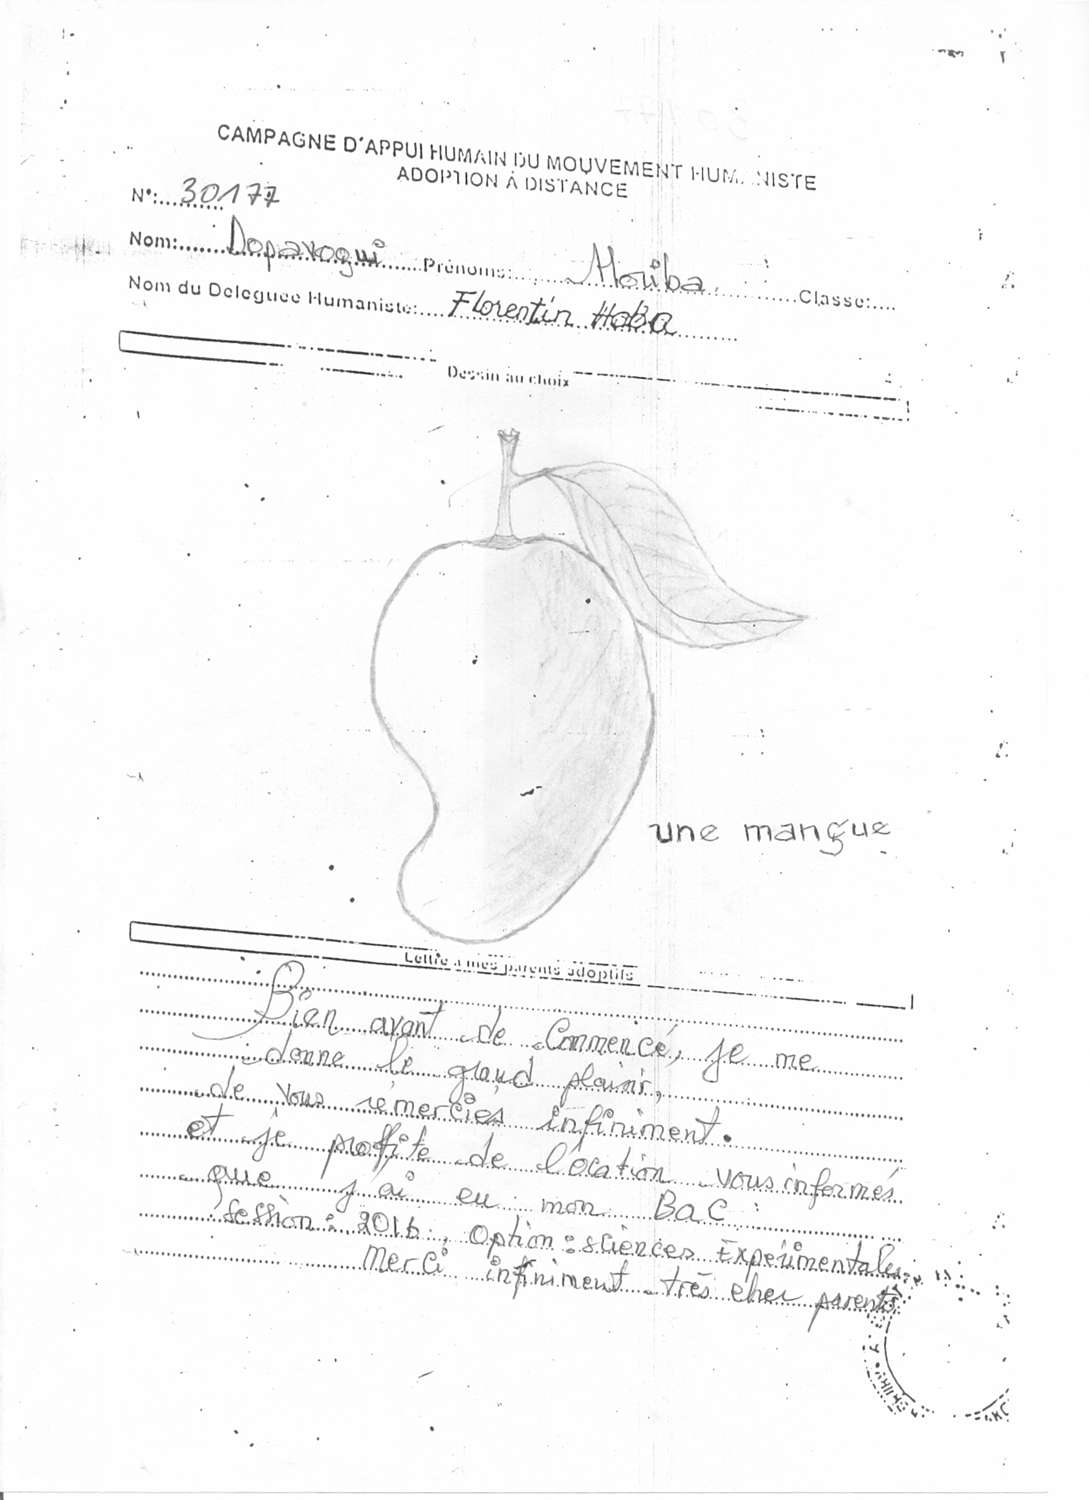 CAMPAGNE D'APPUI HUMAIN DU MOUVEMENT HUMANISTE
ADOPTION À DISTANCE
N°:..........30177
Nom:......Dopavogui......Prénoms:......Mouba..............Classe:....
Nom du Deleguée Humaniste:....Florentin HaBa.........
Dessin au choix
une mangue
Lettre à mes parents adoptifs
Bien avant de Commencé, je me
donne le grand plaisir,
de vous rémercies infiniment.
et je profite de l'ocation vous informés
que j'ai eu mon BaC :
Session: 2016, Option: sciences Expérimentales
Merci infiniment très cher parents